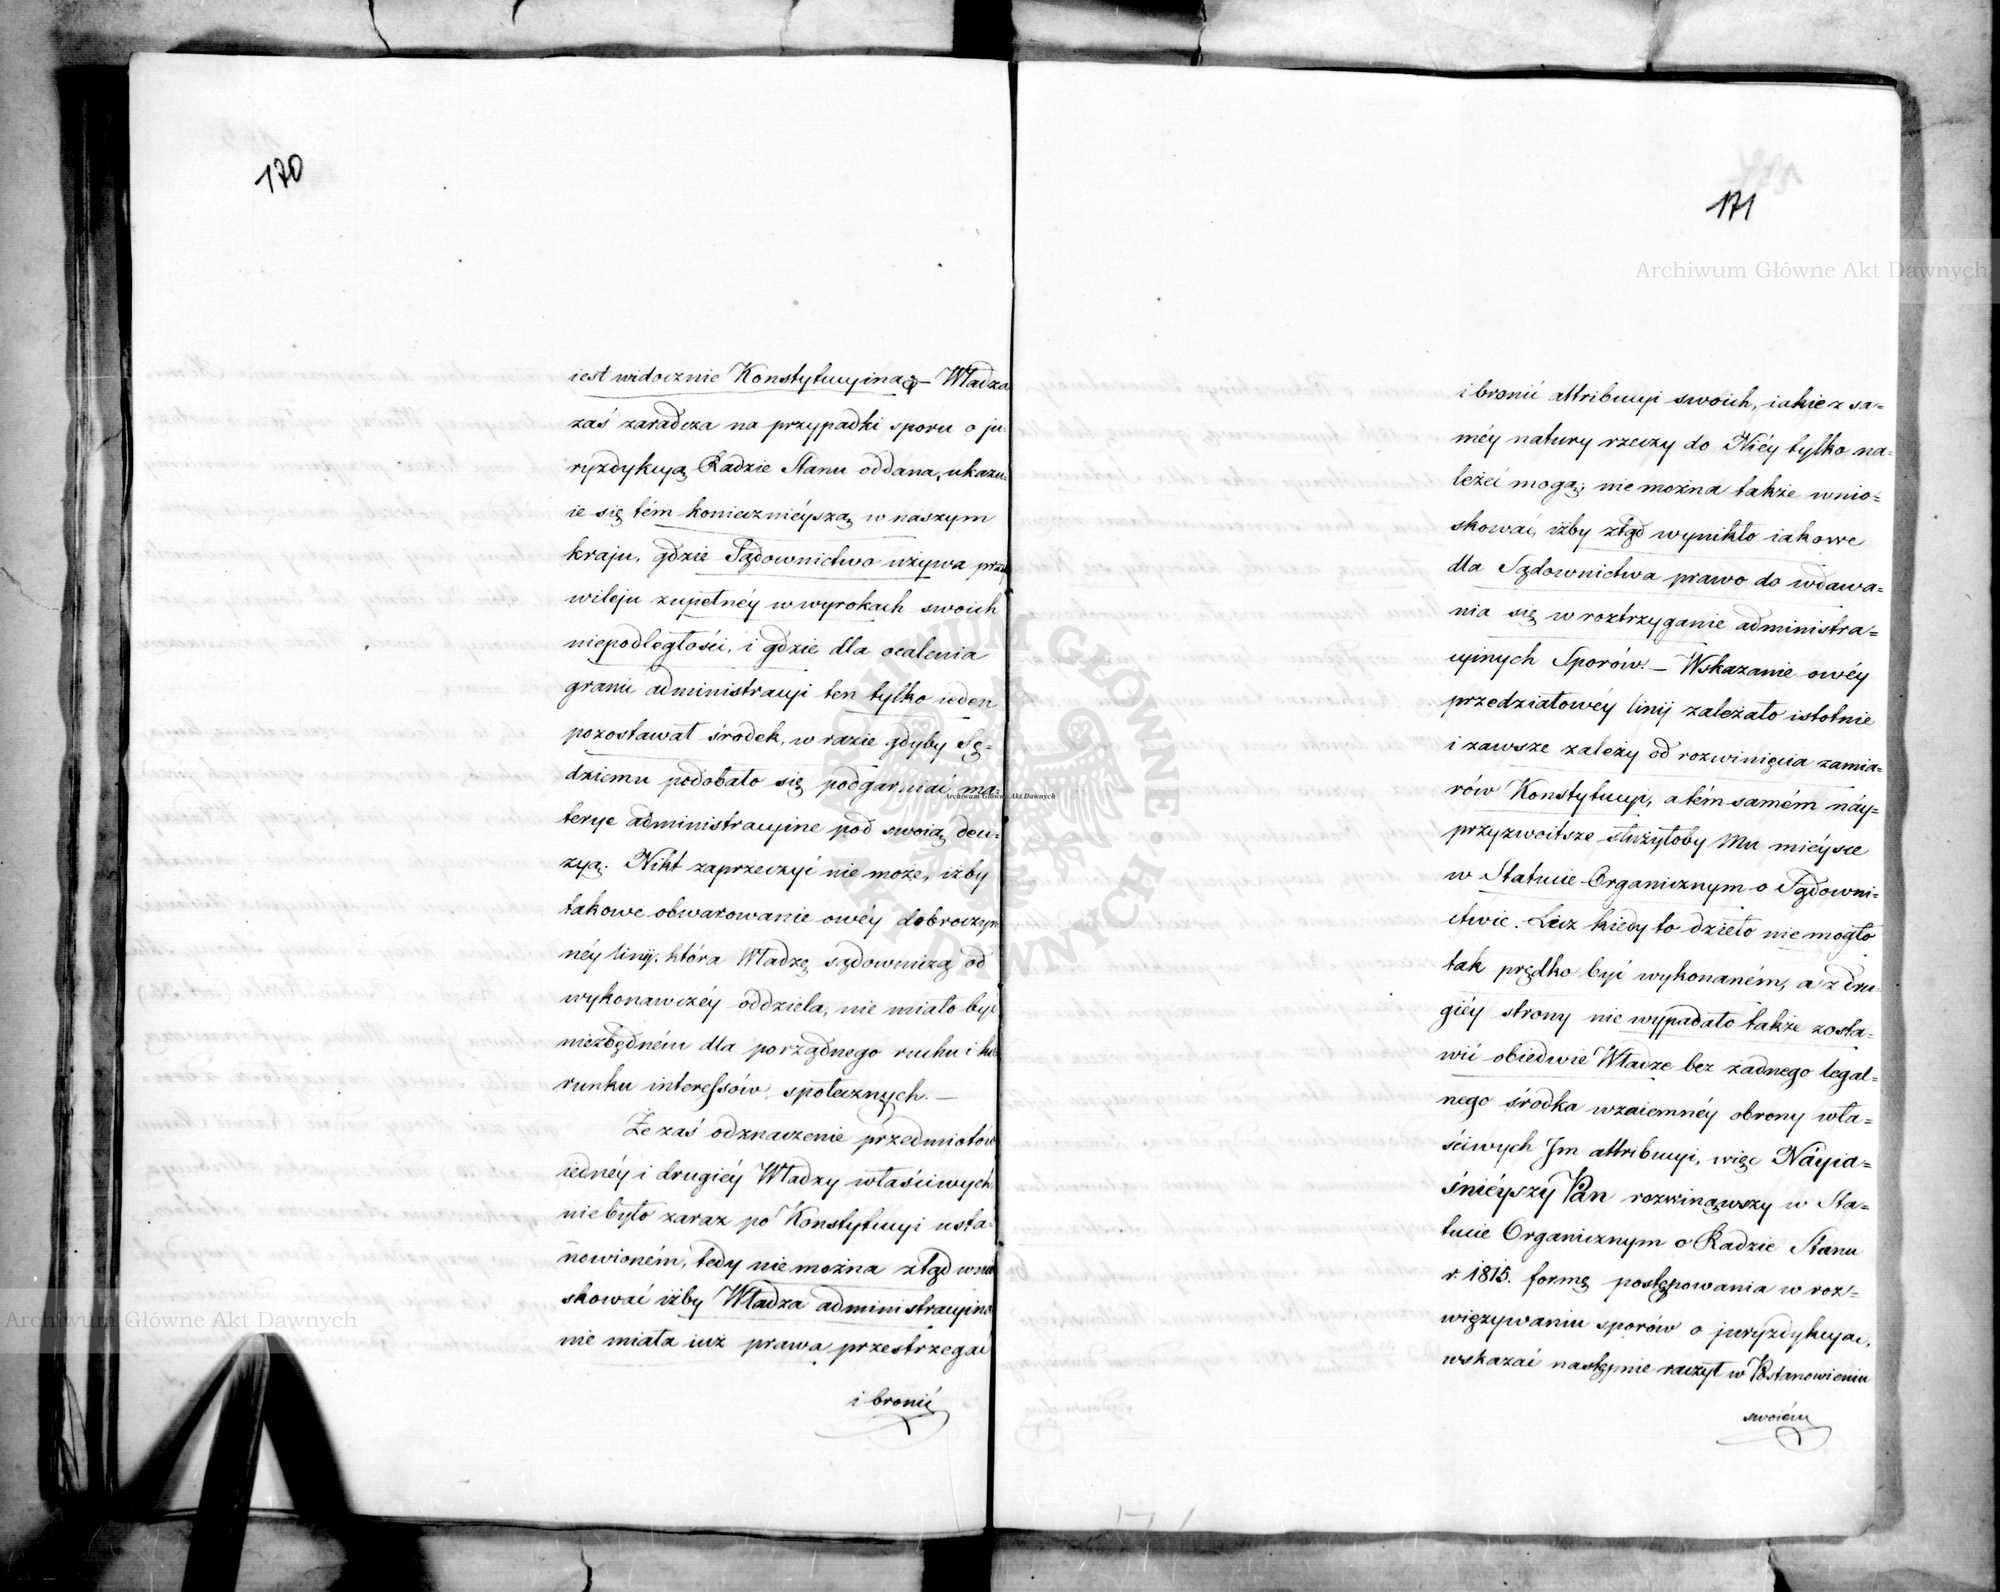 170
iest widocznie Konstytucyiną – Władza
zaś zaradcza na przypadki sporu o ju-
ryzdykcyą Radzie Stanu oddana, ukazu=
ie się tém koniecznieyszą w naszym
kraju, gdzie Sądownictwo używa przy
wileju zupełnéy w wyrokach swoich
niepodległości, i gdzie dla ocalenia
granic administracyi ten tylko ieden
pozostawał środek, w razie gdyby Sę-
dziemu podobało się podgarniać ma-
terye administracyine pod swoią decy-
zyą. Nikt zaprzeczyć nie może, iżby
takowe obwarowanie owéy dobroczyn
néy linij, która Władzę sądowniczą od
wykonawczéy oddziela, nie miało być
niezbędném dla porządnego ruchu i kie
runku interessów społecznych. —
Że zaś odznaczenie przedmiotów
iednéy i drugiéy Władzy właściwych,
nie było zaraz po Konstytucyi usta-
nowioném, tedy nie można ztąd wnio
skować iżby Władza administracyina
nie miała iuż prawa przestrzegać
i bronić
171
i bronić attribucyi swoich, iakie z sa=
méy natury rzeczy do Niéy tylko na=
leżeć mogą; nie można także wnio=
skować, iżby ztąd wynikło iakowe
dla Sądownictwa prawo do wdawa=
nia się w roztrzyganie administra=
cyinych Sporów. – Wskazanie owéy
przedziałowéy linij zależało istotnie
i zawsze zależy od rozwinięcia zamia=
rów Konstytucyi, a tém samém náy-
przyzwoitsze służyłoby Mu mieysce
w Statucie Organicznym o Sądowni-
ctwie. Lecz kiedy to dzieło nie mogło
tak prędko być wykonaném, a z dru-
giéy strony nie wypadało także zosta=
wić obiedwie Władze bez żadnego legal=
nego środka wzaiemnéy obrony wła=
ściwych Im attribucyi, więc Náyia=
śnieyszy Pan rozwinąwszy w Sta=
tucie Organicznym o Radzie Stanu
r. 1815. formę postępowania w roz=
więzywaniu sporów o juryzdykcyą,
wskazać następnie raczył w Postanowieniu
swoiém
Archiwum Główne Akt Dawnych
Archiwum Główne Akt Dawnych
Archiwum Główne Akt Dawnych
ARCHIWUM GŁÓWNE AKT DAWNYCH